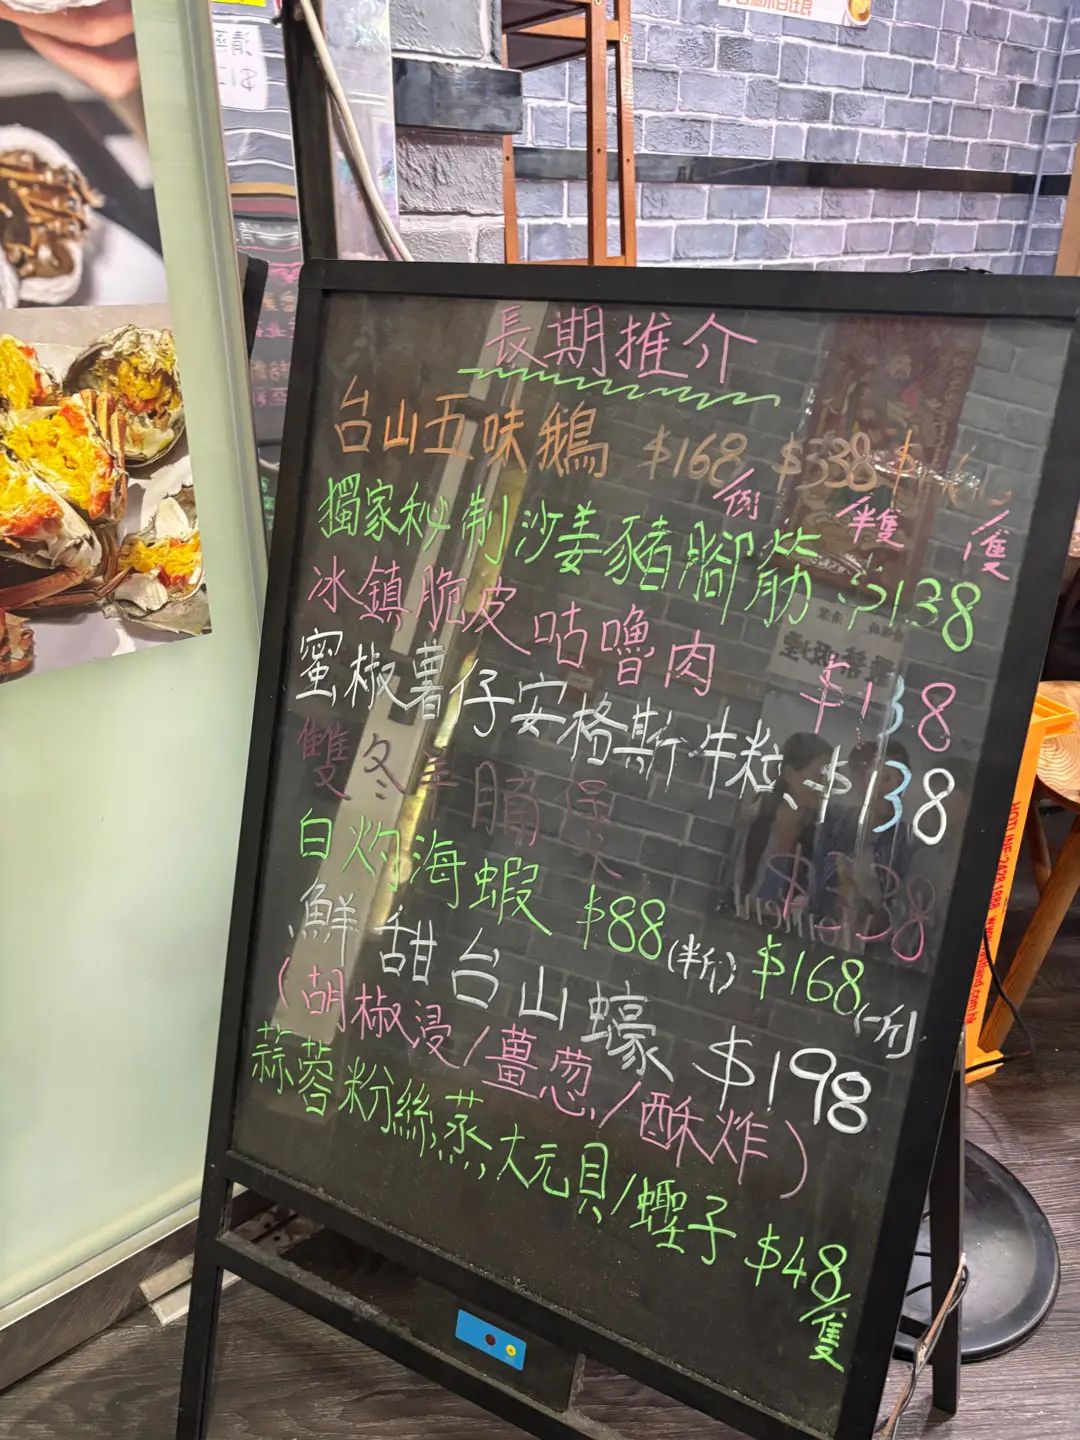 長期推介
台山五味鵝 $168/例 $338/半隻 $ /隻
獨家秘制沙姜豬腳筋 $138
冰鎮脆皮咕嚕肉 $138
蜜椒薯仔安格斯牛粒 $138
雙冬羊腩煲 $338
白灼海蝦 $88(半斤) $168(一斤)
鮮甜台山蠔 $198
(胡椒浸/薑葱/酥炸)
蒜蓉粉絲蒸大元貝/蟶子 $48/隻
HOTLINE:2428 1888